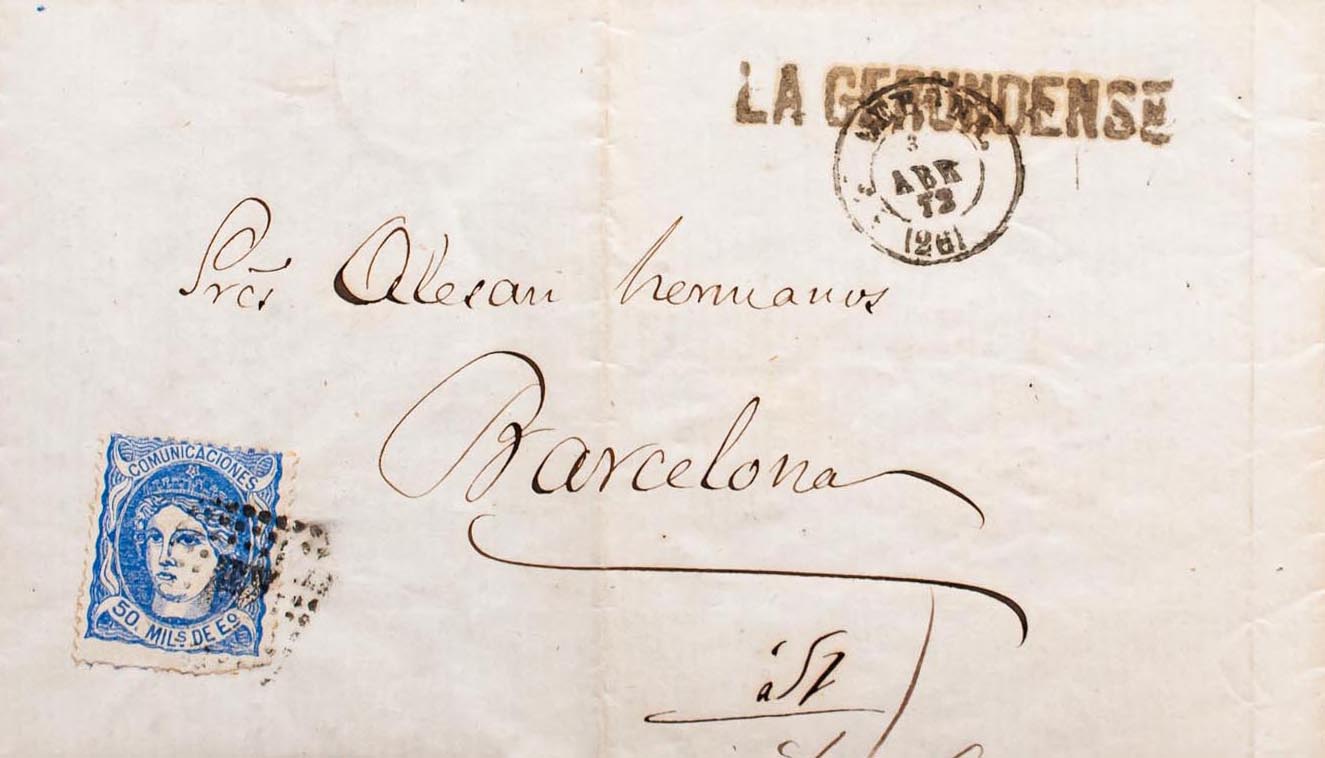 LA GERUNDENSE
GERONA
3
ABR
72
(26)
Sres Alesan hermanos
Barcelona
COMUNICACIONES
50. MILS. DE Eo